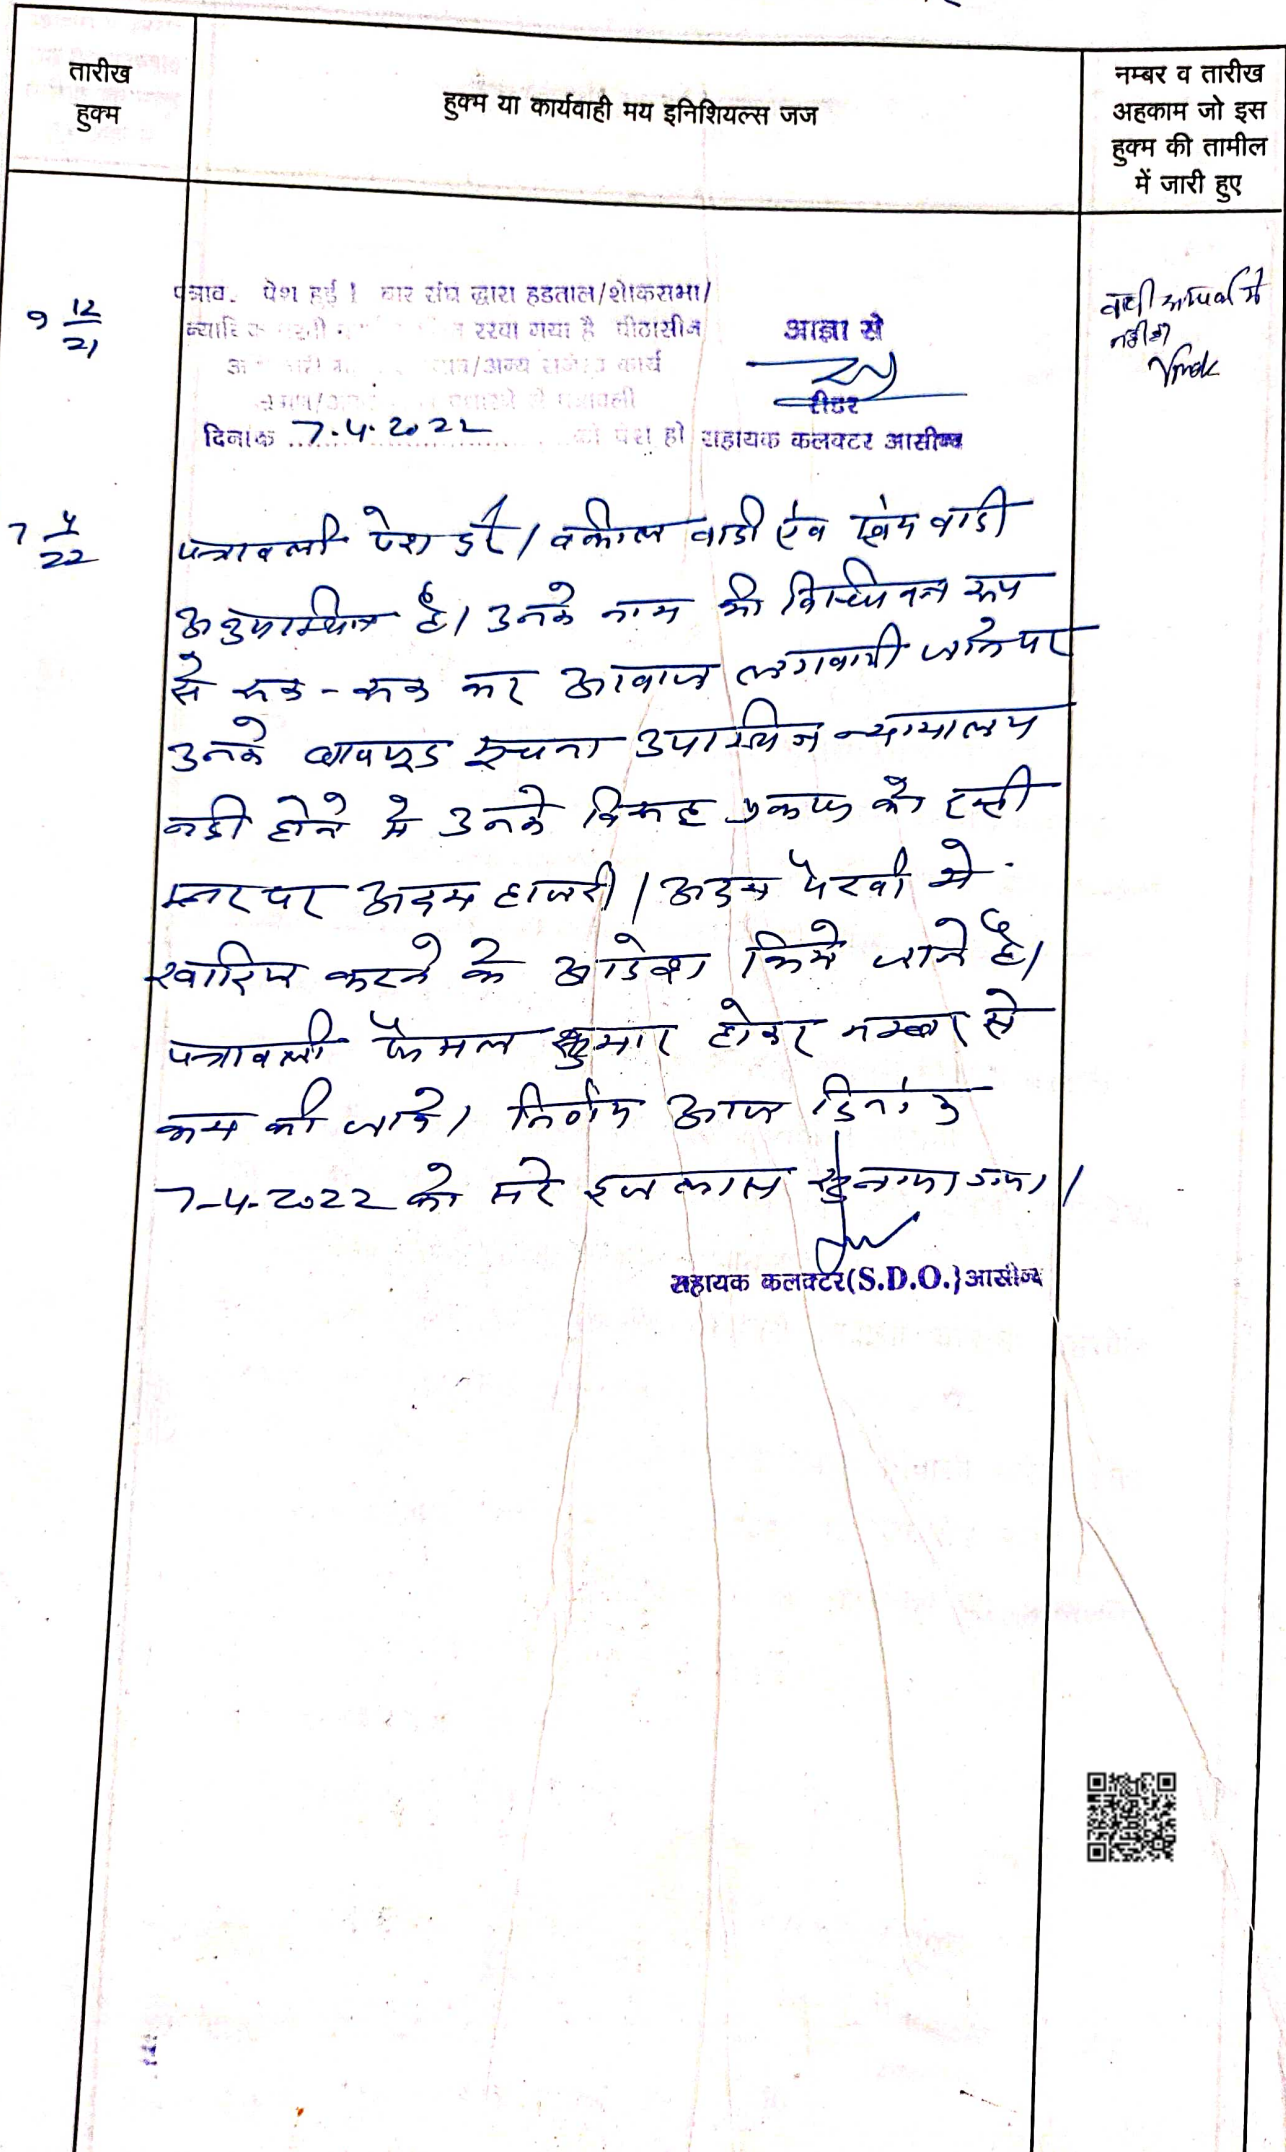 तारीख
हुक्म
हुक्म या कार्यवाही मय इनिशियल्स जज
नम्बर व तारीख
अहकाम जो इस
हुक्म की तामील
में जारी हुए
9 12/21
पत्राव. पेश हुई। बार संघ द्वारा हडताल/शोकसभा/
रखा गया है पीठासीन
/अन्य राजकीय कार्य
दिनांक 7.4.2022 को पेश हो
आज्ञा से
रीडर
सहायक कलक्टर आसीन्द
वादी सम्पर्क में
नहीं है
7 4/22
पत्रावली पेश हुई। वकील वादी एंव स्वंय वादी
अनुपस्थित है। उनके नाम की विधिवत रूप
से रूक-रूक कर आवाज लगवायी जाने पर
उनके बावजूद सूचना उपस्थित न्यायालय
नही होने से उनके विरूद्ध को इसी
स्तर पर अदम हाजरी/अदम पैरवी में
खारिज करने के आदेश किये जाते है।
पत्रावली फैसल शुमार होकर नम्बर से
कम की जावे। निर्णय आज दिनांक
7-4-2022 को सरे इजलास सुनाया गया।
सहायक कलक्टर(S.D.O.)आसीन्द